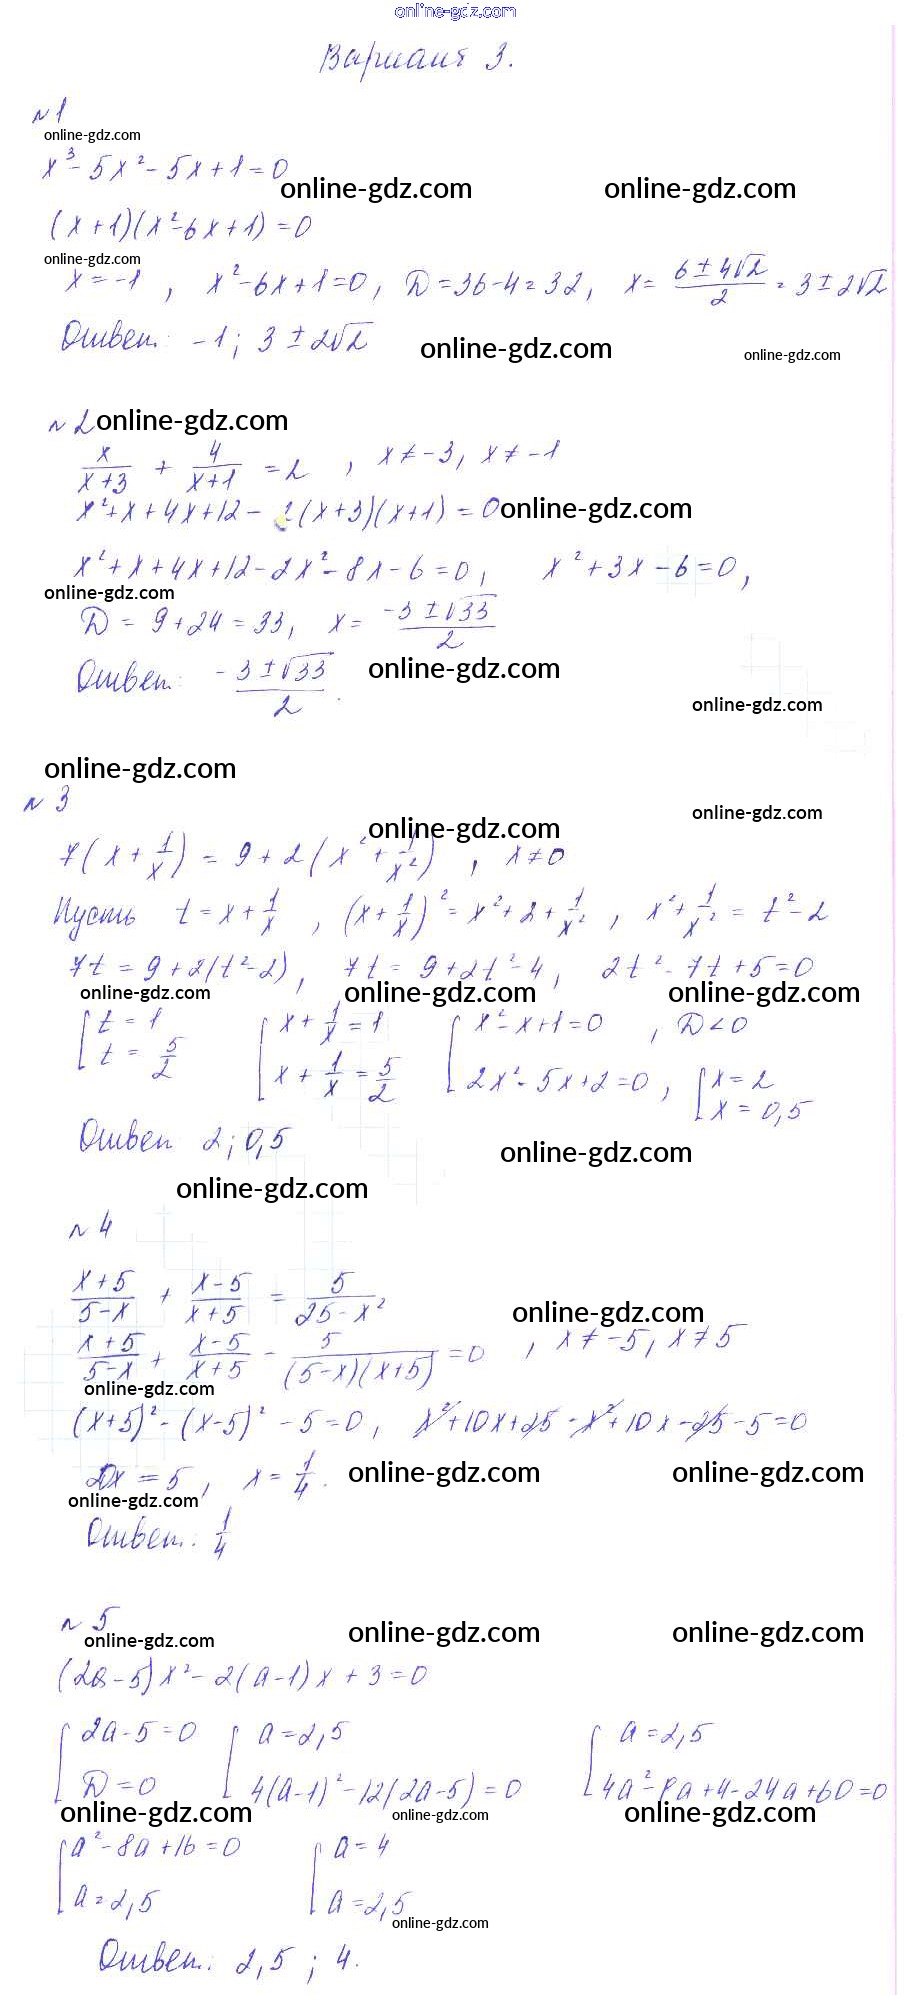 online-gdz.com
Вариант 3.
№1
online-gdz.com
x³ - 5x² - 5x + 1 = 0
online-gdz.com online-gdz.com
(x + 1)(x² - 6x + 1) = 0
online-gdz.com
x = -1 , x² - 6x + 1 = 0, D = 36 - 4 = 32, x = (6 ± 4√2)/2 = 3 ± 2√2
Ответ: -1; 3 ± 2√2
online-gdz.com online-gdz.com
№2 online-gdz.com
x/(x+3) + 4/(x+1) = 2 , x ≠ -3, x ≠ -1
x² + x + 4x + 12 - 2(x+3)(x+1) = 0 online-gdz.com
x² + x + 4x + 12 - 2x² - 8x - 6 = 0, x² + 3x - 6 = 0,
online-gdz.com
D = 9 + 24 = 33, x = (-3 ± √33)/2
Ответ: (-3 ± √33)/2.
online-gdz.com
online-gdz.com
online-gdz.com
№3
online-gdz.com
online-gdz.com
7(x + 1/x) = 9 + 2(x² + 1/x²) , x ≠ 0
Пусть t = x + 1/x , (x + 1/x)² = x² + 2 + 1/x² , x² + 1/x² = t² - 2
7t = 9 + 2(t² - 2), 7t = 9 + 2t² - 4, 2t² - 7t + 5 = 0
online-gdz.com online-gdz.com online-gdz.com
[ t = 1 [ x + 1/x = 1 [ x² - x + 1 = 0 , D < 0
t = 5/2 x + 1/x = 5/2 2x² - 5x + 2 = 0 , [ x = 2
x = 0,5
Ответ 2; 0,5
online-gdz.com
online-gdz.com
№4
(x+5)/(5-x) + (x-5)/(x+5) = 5/(25-x²)
online-gdz.com
(x+5)/(5-x) + (x-5)/(x+5) - 5/((5-x)(x+5)) = 0 , x ≠ -5, x ≠ 5
online-gdz.com
(x+5)² - (x-5)² - 5 = 0, x² + 10x + 25 - x² + 10x - 25 - 5 = 0
20x = 5, x = 1/4.
online-gdz.com online-gdz.com
online-gdz.com
Ответ: 1/4
№5
online-gdz.com online-gdz.com online-gdz.com
(2a - 5)x² - 2(a - 1)x + 3 = 0
[ 2a - 5 = 0 [ a = 2,5 [ a = 2,5
D = 0 4(a-1)² - 12(2a-5) = 0 4a² - 8a + 4 - 24a + 60 = 0
online-gdz.com online-gdz.com online-gdz.com
[ a² - 8a + 16 = 0 [ a = 4
a = 2,5 a = 2,5
online-gdz.com
Ответ: 2,5; 4.